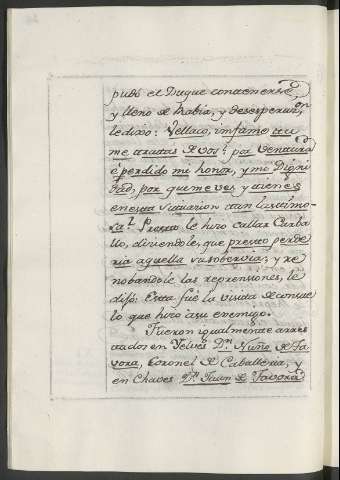 pudo el Duque contenerse,
y lleno de rabia, y desesperazon
le dixo: Vellaco, infame tu
me tratas de vos? por ventura
é perdido mi honor, y mi Digni
dad, por que me ves, y tienes
en esta situacion tan lastimo-
sa? Presto le hizo callar Carba
llo, diciendole, que presto perde
ria aquella su sobervia; y re
nobandole las reprensiones, le
dejó: Esta fué la visita de consue
lo que hizo a su enemigo.
Fueron igualmente arres
tados en Yelves Dn. Nuño de Ta
vora, Coronel de Caballeria, y
en Chaves Dn. Juan de Tavora